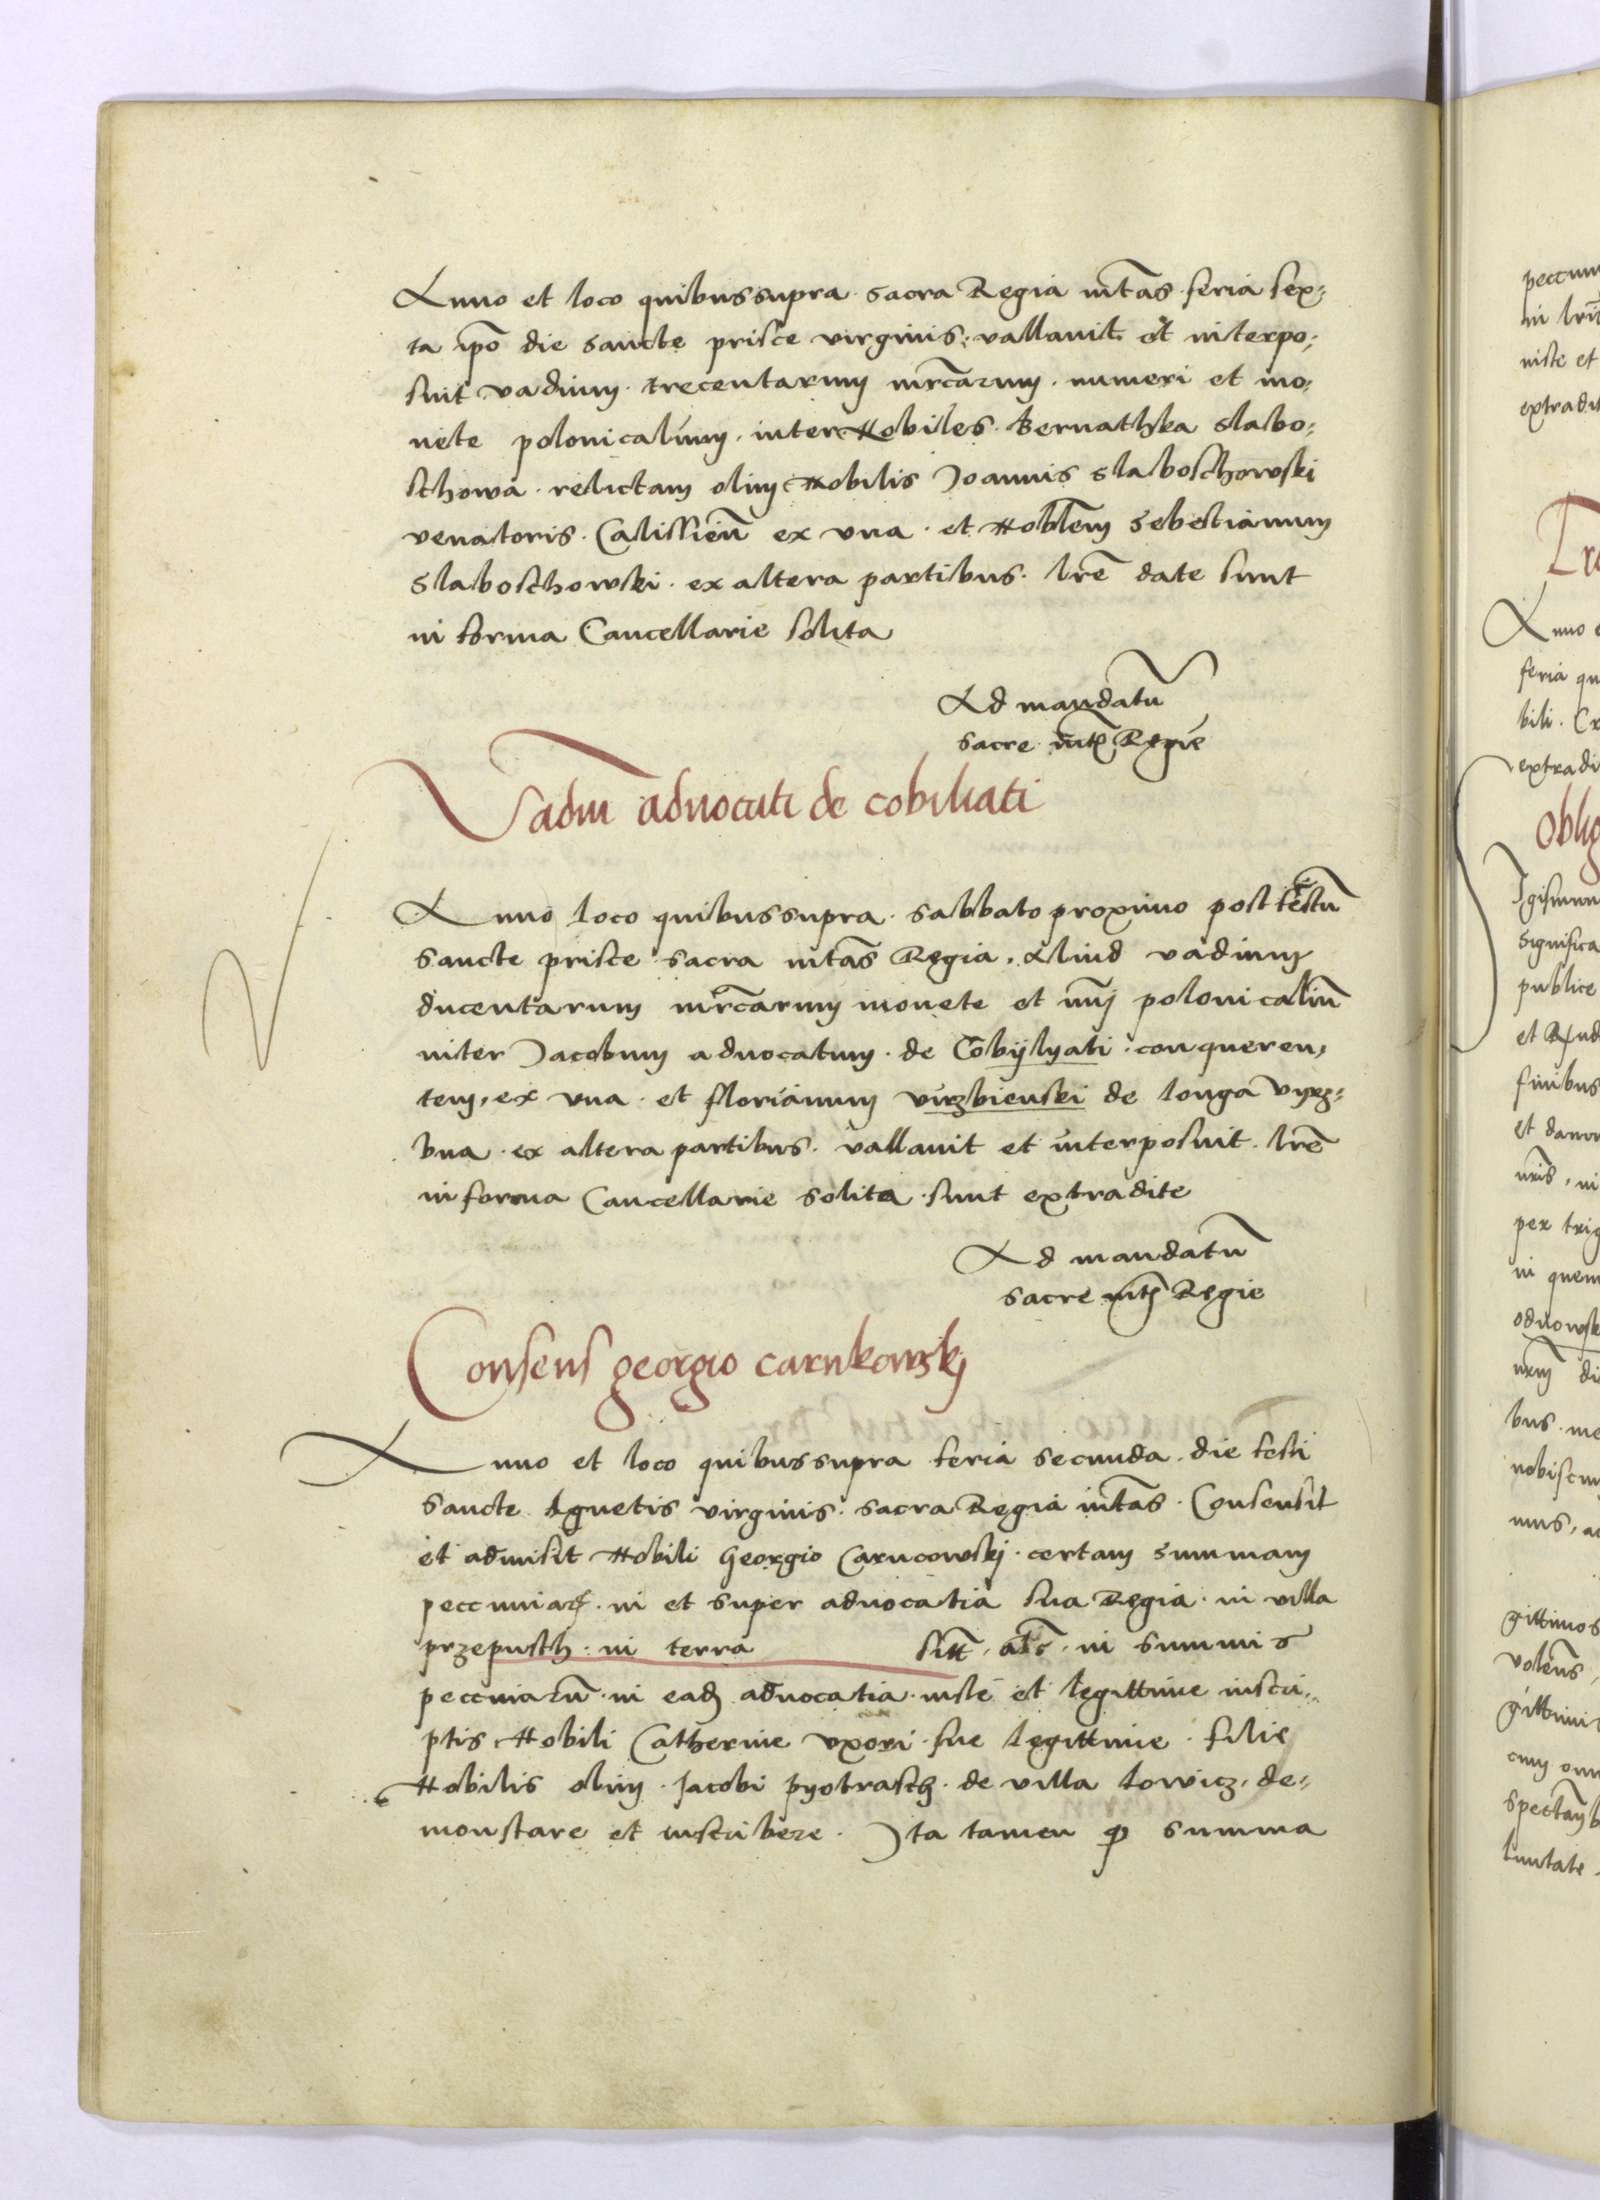 Anno et loco quibus supra · sacra Regia mtas · feria sex⸗
ta ipo die sancte prisce virginis · vallavit et interpo⸗
suit vadium · trecentarum mrcarum · numeri et mo⸗
nete polonicalium · inter Nobiles · Bernathka Slabo⸗
schowa · relictam olim Nobilis Joannis Slaboschowski
venatoris · Calissien ex vna · et Noblem Sebestianum
Slaboschowski · ex altera partibus · lre date sunt
in forma Cancellarie solita
Ad mandatu
sacre mtis Regie
Vadiu advocati de cobiliati
Anno loco quibus supra · sabbato proximo post festu
sancte prisce sacra mtas Regia · aliud vadium
ducentarum mrcarum monete et nuj polonicaliu
inter Jacobum advocatum · de Cobÿlyati · conqueren⸗
tem, ex vna · et florianum virzbienski de longa vyrz⸗
bna · ex altera partibus · vallavit et interposuit · lre
in forma Cancellarie solita · sunt extradite
Ad mandatu
sacre mtis Regie
Consens georgio carnkowskj
Anno et loco quibus supra feria secunda · die festi
sancte Agnetis virginis · sacra Regia mtas · Consensit
et admisit Nobili Georgio Carncowskj · certam summam
peccuniar · in et super advocatia sua Regia · in villa
przepusth · in terra sitt · als · in summis
peccuniaru · in eadz advocatia · iuste et legittime inscri⸗
ptis Nobili Catherine vxori sue legittime · filie
Nobilis olim · Jacobi pyotrasch · de villa lowicz, de⸗
monstare et inscribere · Jta tamen q summa
peccun
in
niste et
extradit
Anno
feria qu
bili · Cr
extradi
Oblig
significa
publice
finibus
et damn
per trig
in quem
odnowsk
bus · me
nobiscum
mus, a
gittimos
volens
gittimi
cum omn